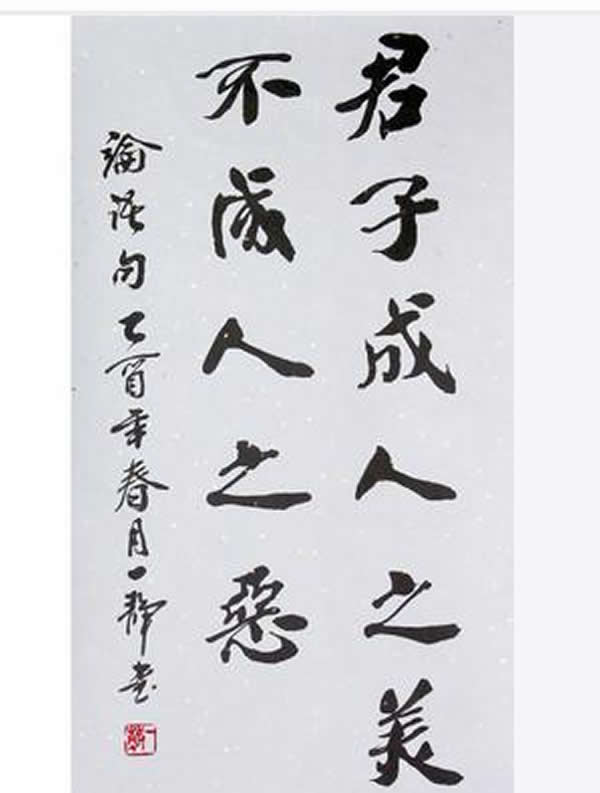 君子成人之美
不成人之惡
論語句乙酉年春月一靜书